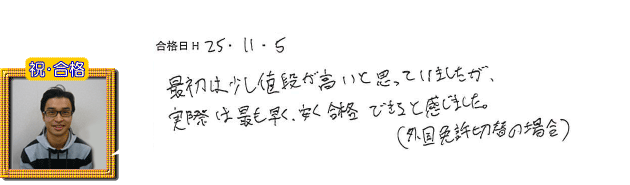 合格日 H 25・11・5
祝・合格
最初は少し値段が高いと思っていましたが、
実際は最も早く、安く合格できると感じました。
(外国免許切替の場合)